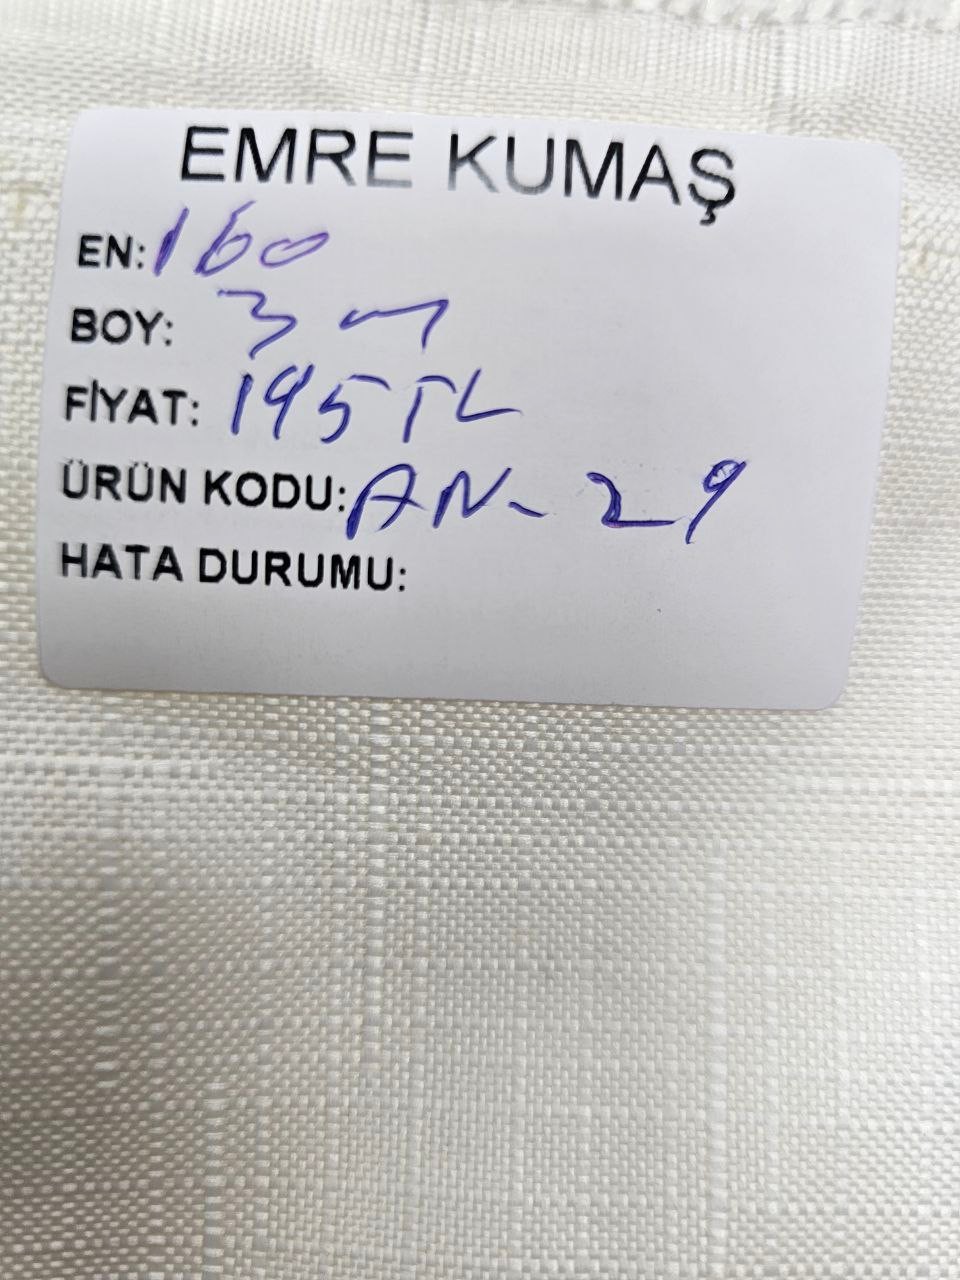 EMRE KUMAŞ
EN: 160
BOY: 3 m
FİYAT: 195 TL
ÜRÜN KODU: AN-29
HATA DURUMU: